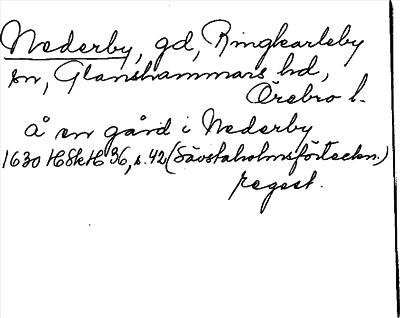 Nederby, gd, Ringkarleby
sn, Glanshammars hd,
Örebro l.
Å en gård i Nederby
1630 HSkH 36, s. 42 (Sävstaholmsförteckn.)
regest.